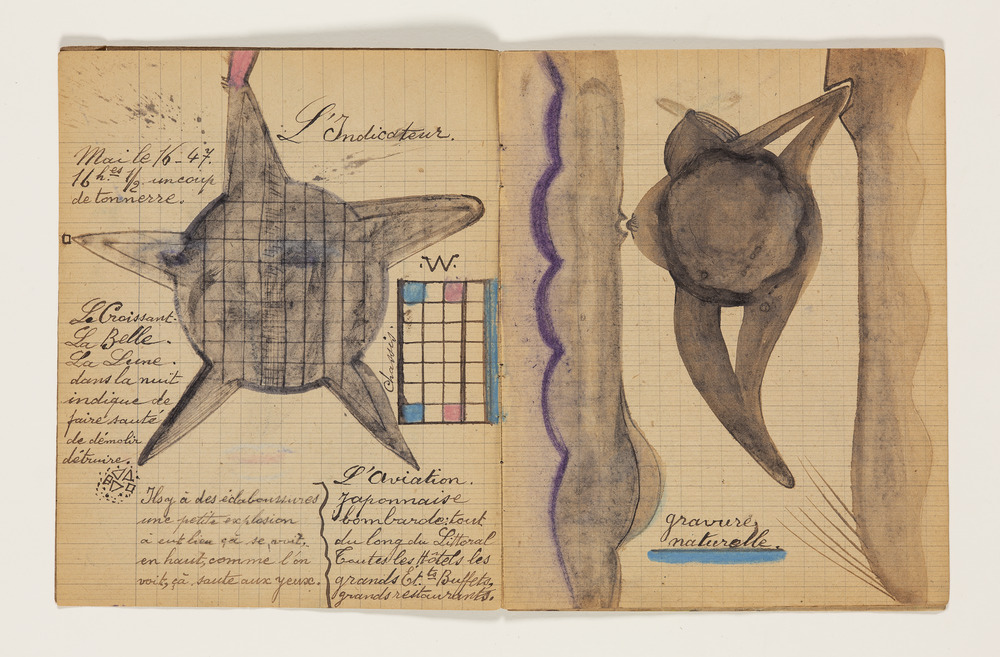 L'Indicateur.
Mai le 16-47.
16 h.es 1/2. un coup
de tonnerre.
.W.
Chassis.
Le Croissant.
La Belle.
La Lune.
dans la nuit
indique de
faire sauté
de démolir
détruire.
Ils y à des éclaboussures
une petite explosion
à eut lieu çà se voit,
en haut, comme l'on
voit, çà, saute aux yeux.
L'Aviation.
Japonnaise
bombarde: tout
du long du Littoral
Toutes les Hôtels les
grands Et.ts Buffets,
grands restaurants.
gravure
naturelle.